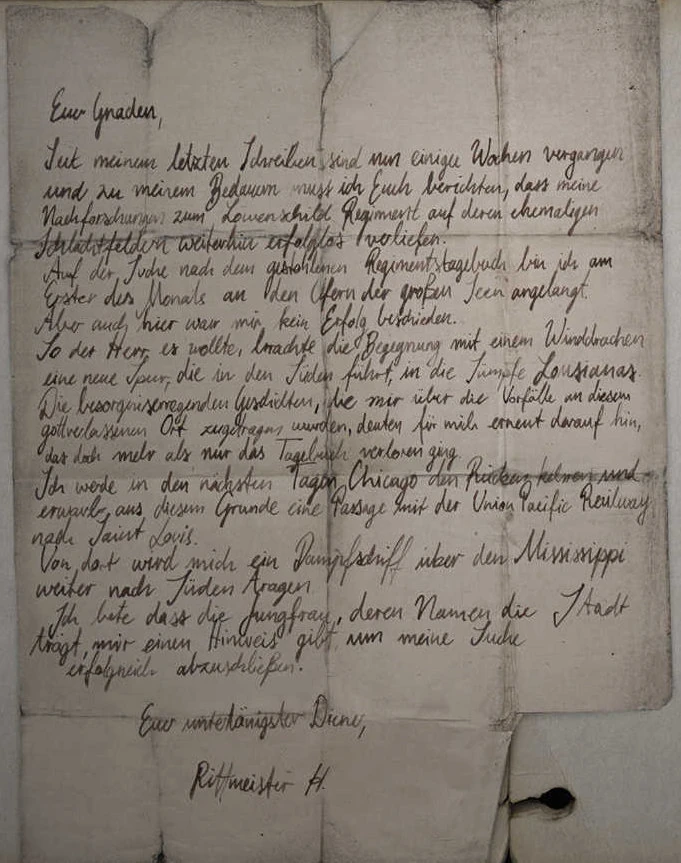 Euer Gnaden,
Seit meinem letzten Schreiben sind nun einige Wochen vergangen
und zu meinem Bedauern muss ich Euch berichten, dass meine
Nachforschungen zum Löwenschild Regiment auf deren ehemaligen
Schlachtfeldern weiterhin erfolglos verliefen.
Auf der Suche nach dem gestohlenen Regimentstagebuch bin ich am
Erster des Monats an den Ufern der großen Seen angelangt.
Aber auch hier war mir kein Erfolg beschieden.
So der Herr es wollte, brachte die Begegnung mit einem Winddrachen
eine neue Spur, die in den Süden führt, in die Sümpfe Lousianas.
Die besorgniserregenden Geschichten, die mir über die Vorfälle an diesem
gottverlassenen Ort zugetragen wurden, deuten für mich erneut darauf hin,
das doch mehr als nur das Tagebuch verloren ging.
Ich werde in den nächsten Tagen Chicago den Rücken kehren und
erwarb aus diesem Grunde eine Passage mit der Union Pacific Railway
nach Saint Louis.
Von dort wird mich ein Dampfschiff über den Mississippi
weiter nach Süden tragen
Ich bete dass die Jungfrau, deren Namen die Stadt
trägt, mir einen Hinweis gibt, um meine Suche
erfolgreich abzuschließen.
Euer untertänigster Diener,
Rittmeister H.